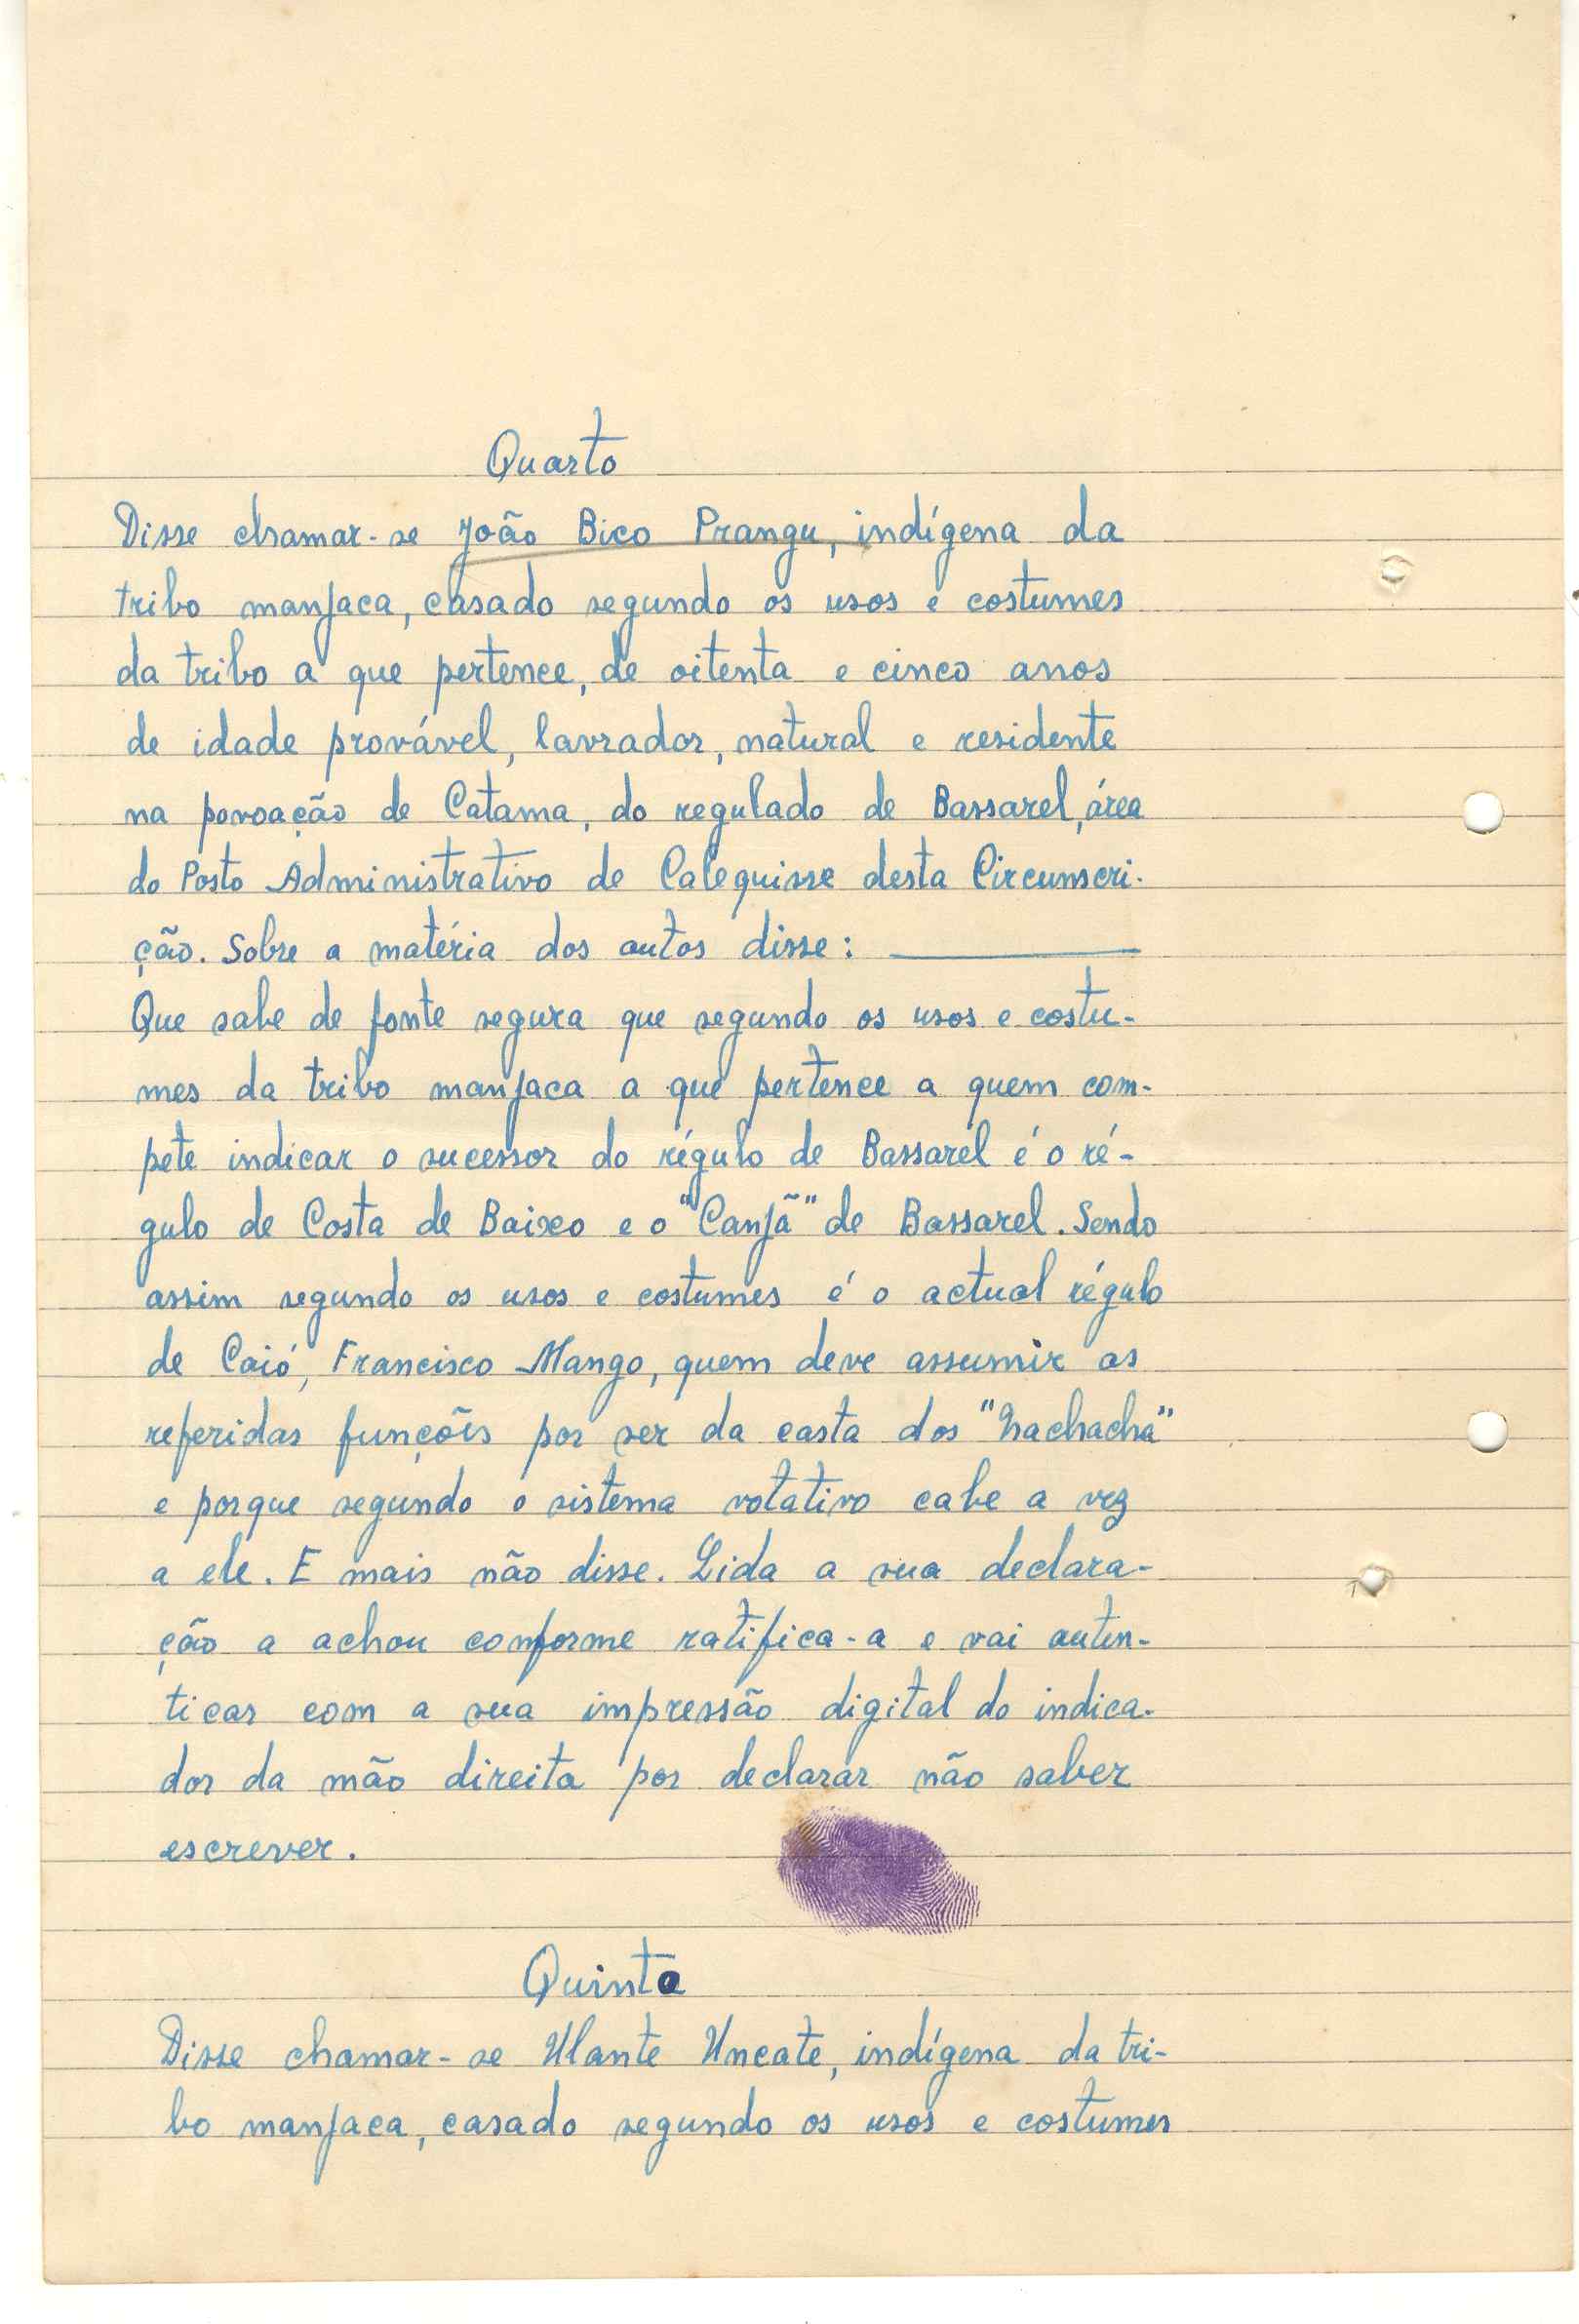 Quarto
Disse chamar-se João Bico Prangu, indígena da
tribo manjaca, casado segundo os usos e costumes
da tribo a que pertence, de oitenta e cinco anos
de idade provável, lavrador, natural e residente
na povoação de Catama, do regulado de Bassarel, área
do Posto Administrativo de Calequisse desta Circunscri-
ção. Sobre a matéria dos autos disse:
Que sabe de fonte segura que segundo os usos e costu-
mes da tribo manjaca a que pertence a quem com-
pete indicar o sucessor do régulo de Bassarel é o ré-
gulo de Costa de Baixo e o "Canjã" de Bassarel. Sendo
assim segundo os usos e costumes é o actual régulo
de Caió, Francisco Mango, quem deve assumir as
referidas funções por ser da casta dos "Nachachá"
e porque segundo o sistema rotativo cabe a vez
a ele. E mais não disse. Lida a sua declara-
ção a achou conforme ratifica-a e vai autên-
ticar com a sua impressão digital do indica-
dor da mão direita por declarar não saber
escrever.
Quinta
Disse chamar-se Ulante Uncate, indígena da tri-
bo manjaca, casado segundo os usos e costumes